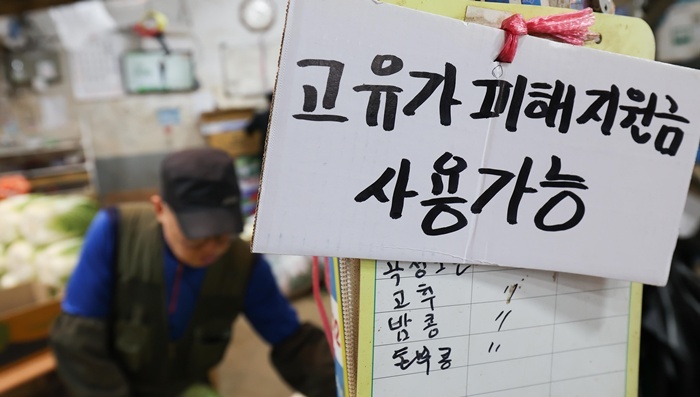 고유가 피해지원금
사용가능
고추 "
밤콩 "
돈부콩 "